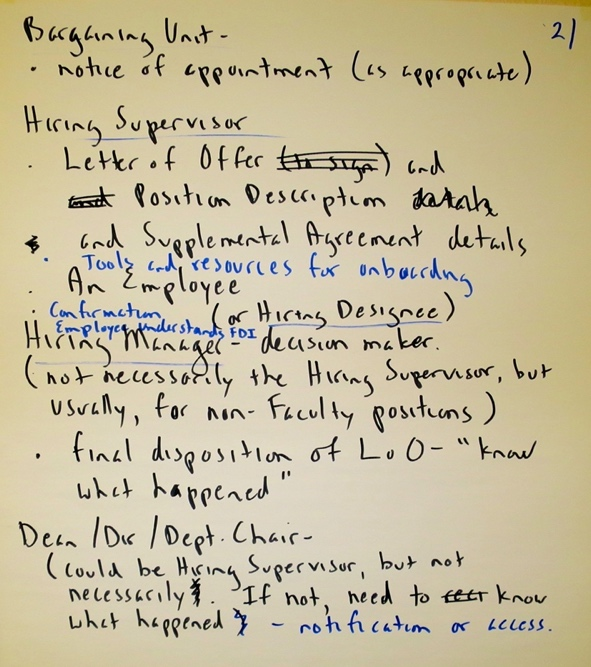 Bargaining Unit -
2/
• notice of appointment (as appropriate)
Hiring Supervisor
• Letter of Offer (to sign) and
and Position Description details
and Supplemental Agreement details
• Tools and resources for onboarding
• An Employee
• Confirmation Employee understands FDI
(or Hiring Designee)
Hiring Manager - decision maker.
(not necessarily the Hiring Supervisor, but
usually, for non-Faculty positions)
• final disposition of LoO - "know
what happened"
Dean / Dir / Dept. Chair -
(could be Hiring Supervisor, but not
necessarily. If not, need to know
what happened - notification or access.